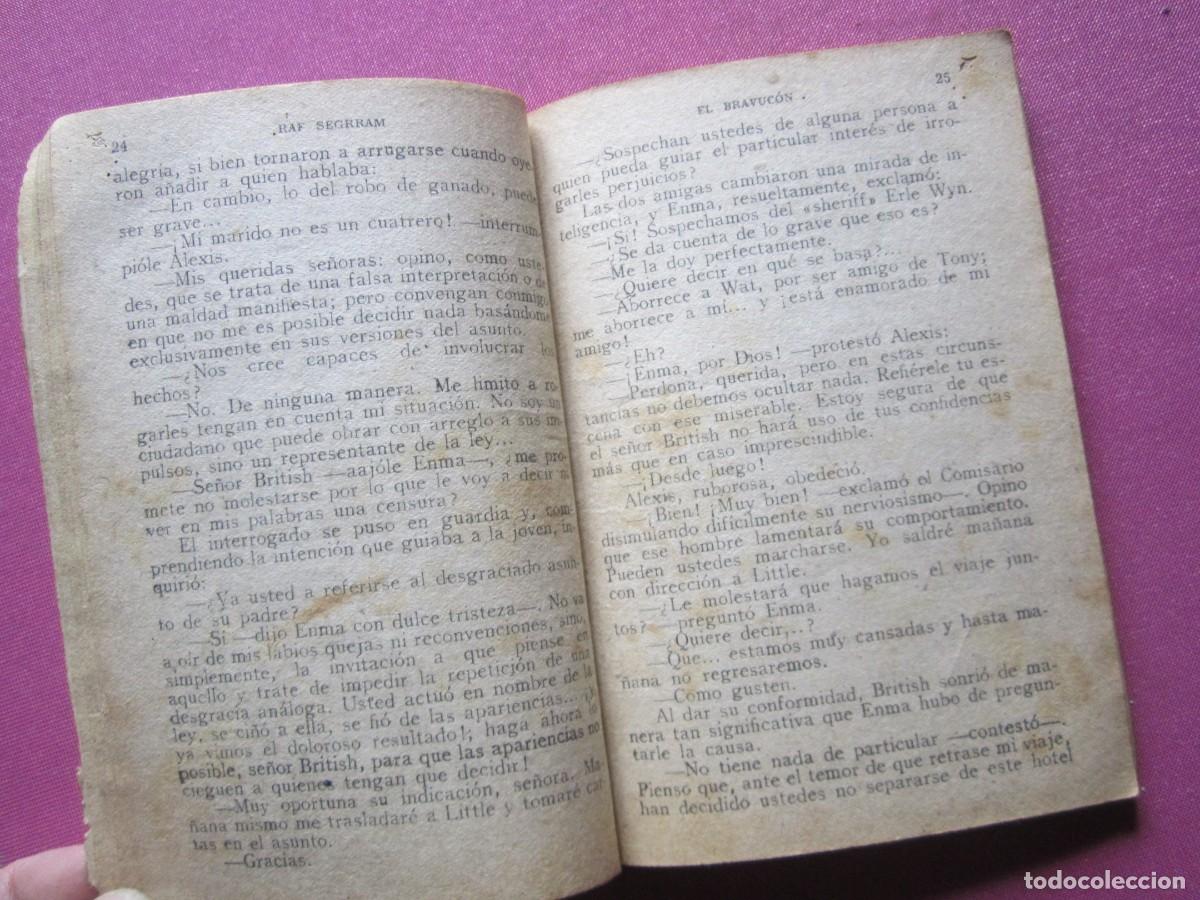 24
RAF SEGRRAM
alegría, si bien tornaron a arrugarse cuando oye-
ron añadir a quien hablaba:
—En cambio, lo del robo de ganado, puede
ser grave...
—¡Mi marido no es un cuatrero! —interrum-
pióle Alexis.
—Mis queridas señoras: opino, como uste-
des, que se trata de una falsa interpretación o de
una maldad manifiesta; pero convengan conmigo
en que no me es posible decidir nada basándome
exclusivamente en sus versiones del asunto.
—¿Nos cree capaces de involucrar los
hechos?
—No. De ninguna manera. Me limito a ro-
garles tengan en cuenta mi situación. No soy un
ciudadano que puede obrar con arreglo a sus im-
pulsos, sino un representante de la ley...
—Señor British —aajóle Enma—, ¿me pro-
mete no molestarse por lo que le voy a decir ni
ver en mis palabras una censura?
El interrogado se puso en guardia y, com-
prendiendo la intención que guiaba a la joven, in-
quirió:
—¿Va usted a referirse al desgraciado asun-
to de su padre?
—Sí —dijo Enma con dulce tristeza—. No va
a oír de mis labios quejas ni reconvenciones, sino,
simplemente, la invitación a que piense en
aquello y trate de impedir la repetición de una
desgracia análoga. Usted actuó en nombre de la
ley, se ciñó a ella, se fió de las apariencias... ¡y
ya vimos el doloroso resultado!; haga ahora lo
posible, señor British, para que las apariencias no
cieguen a quienes tengan que decidir!
—Muy oportuna su indicación, señora. Ma-
ñana mismo me trasladaré a Little y tomaré car-
tas en el asunto.
—Gracias.
EL BRAVUCÓN
25
—¿Sospechan ustedes de alguna persona a
quien pueda guiar el particular interés de irro-
garles perjuicios?
Las dos amigas cambiaron una mirada de in-
teligencia, y Enma, resueltamente, exclamó:
—¡Sí! Sospechamos del «sheriff» Erle Wyn.
—¿Se da cuenta de lo grave que eso es?
—Me la doy perfectamente.
—¿Quiere decir en qué se basa?...
—Aborrece a Wat, por ser amigo de Tony;
me aborrece a mí... y ¡está enamorado de mi
amigo!
—¿Eh?
—¡Enma, por Dios! —protestó Alexis:
—Perdona, querida, pero en estas circuns-
tancias no debemos ocultar nada. Refiérele tu es-
cena con ese miserable. Estoy segura de que
el señor British no hará uso de tus confidencias
más que en caso imprescindible.
—¡Desde luego!
Alexis, ruborosa, obedeció.
—¡Bien! ¡Muy bien! —exclamó el Comisario
disimulando difícilmente su nerviosismo—. Opino
que ese hombre lamentará su comportamiento.
Pueden ustedes marcharse. Yo saldré mañana
con dirección a Little.
—¿Le molestará que hagamos el viaje jun-
tos? —preguntó Enma.
—¿Quiere decir,..?
—Que... estamos muy cansadas y hasta ma-
ñana no regresaremos.
—Como gusten.
Al dar su conformidad, British sonrió de ma-
nera tan significativa que Enma hubo de pregun-
tarle la causa.
—No tiene nada de particular —contestó—.
Pienso que, ante el temor de que retrase mi viaje,
han decidido ustedes no separarse de este hotel
todocoleccion